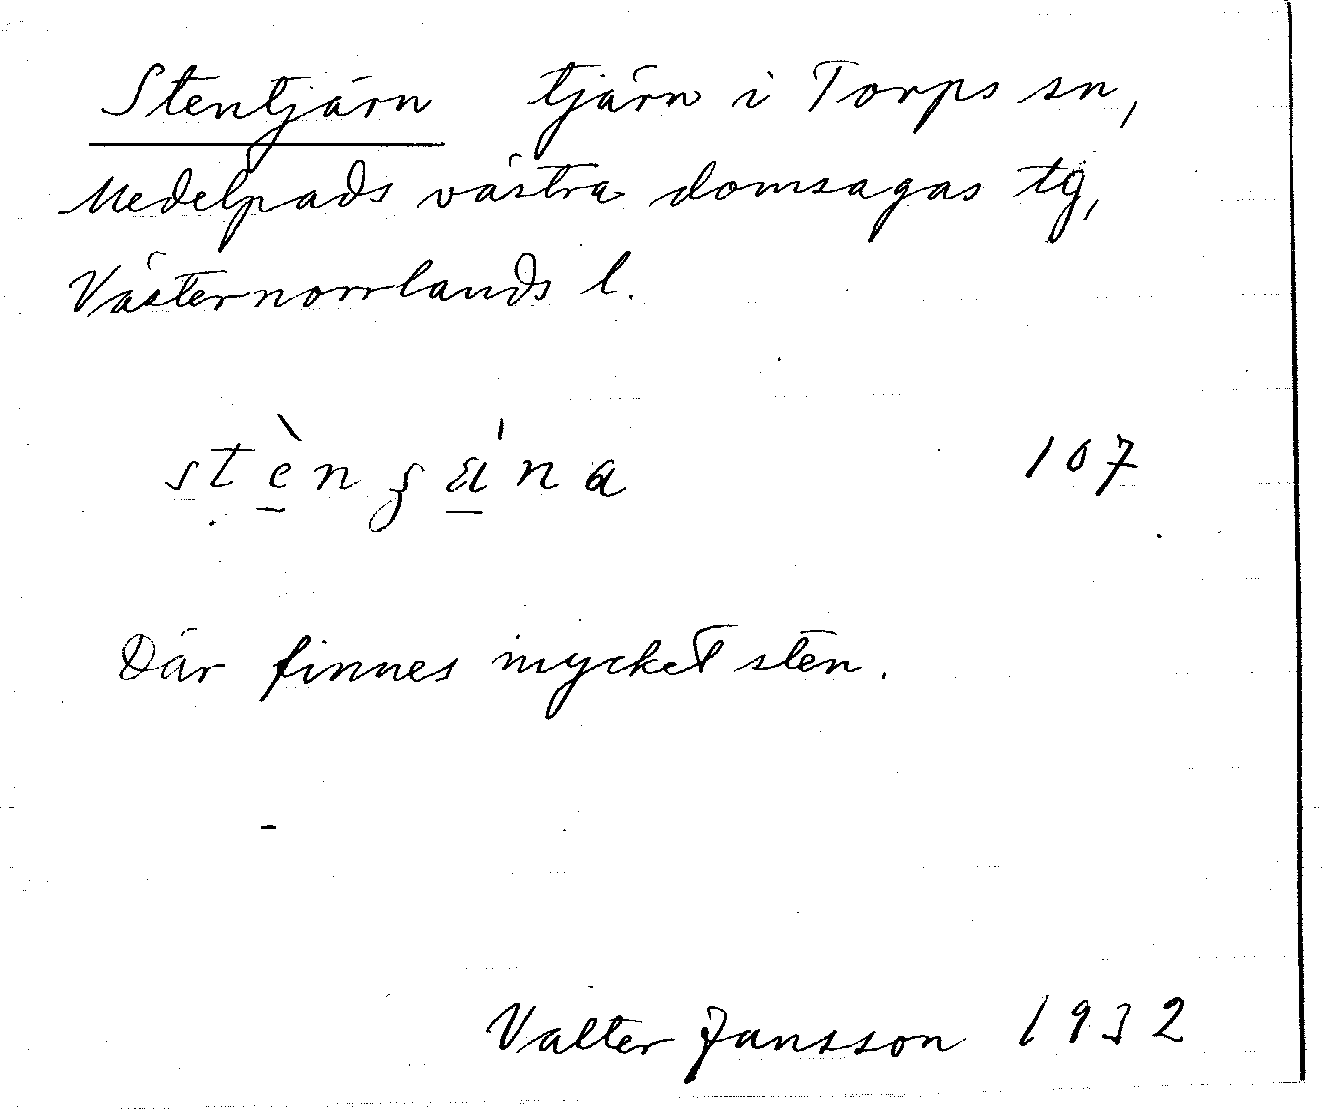 Stentjärn tjärn i Torps sn,
Medelpads västra domsagas tg,
Västernorrlands l.
107
Där finnes mycket sten.
Valter Jansson 1932